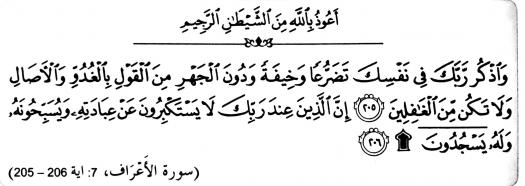 أَعُوذُ بِاللَّهِ مِنَ الشَّيْطَٰنِ الرَّجِيمِ
وَاذْكُر رَّبَّكَ فِى نَفْسِكَ تَضَرُّعًا وَخِيفَةً وَدُونَ الْجَهْرِ مِنَ الْقَوْلِ بِالْغُدُوِّ وَالْأَصَالِ
وَلَا تَكُن مِّنَ الْغَٰفِلِينَ ۝٢٠٥ إِنَّ الَّذِينَ عِندَ رَبِّكَ لَا يَسْتَكْبِرُونَ عَنْ عِبَادَتِهِۦ وَيُسَبِّحُونَهُۥ
وَلَهُۥ يَسْجُدُونَ ۩ ۝٢٠٦
(سورة الأَعْرَاف، 7: اية 206 – 205)